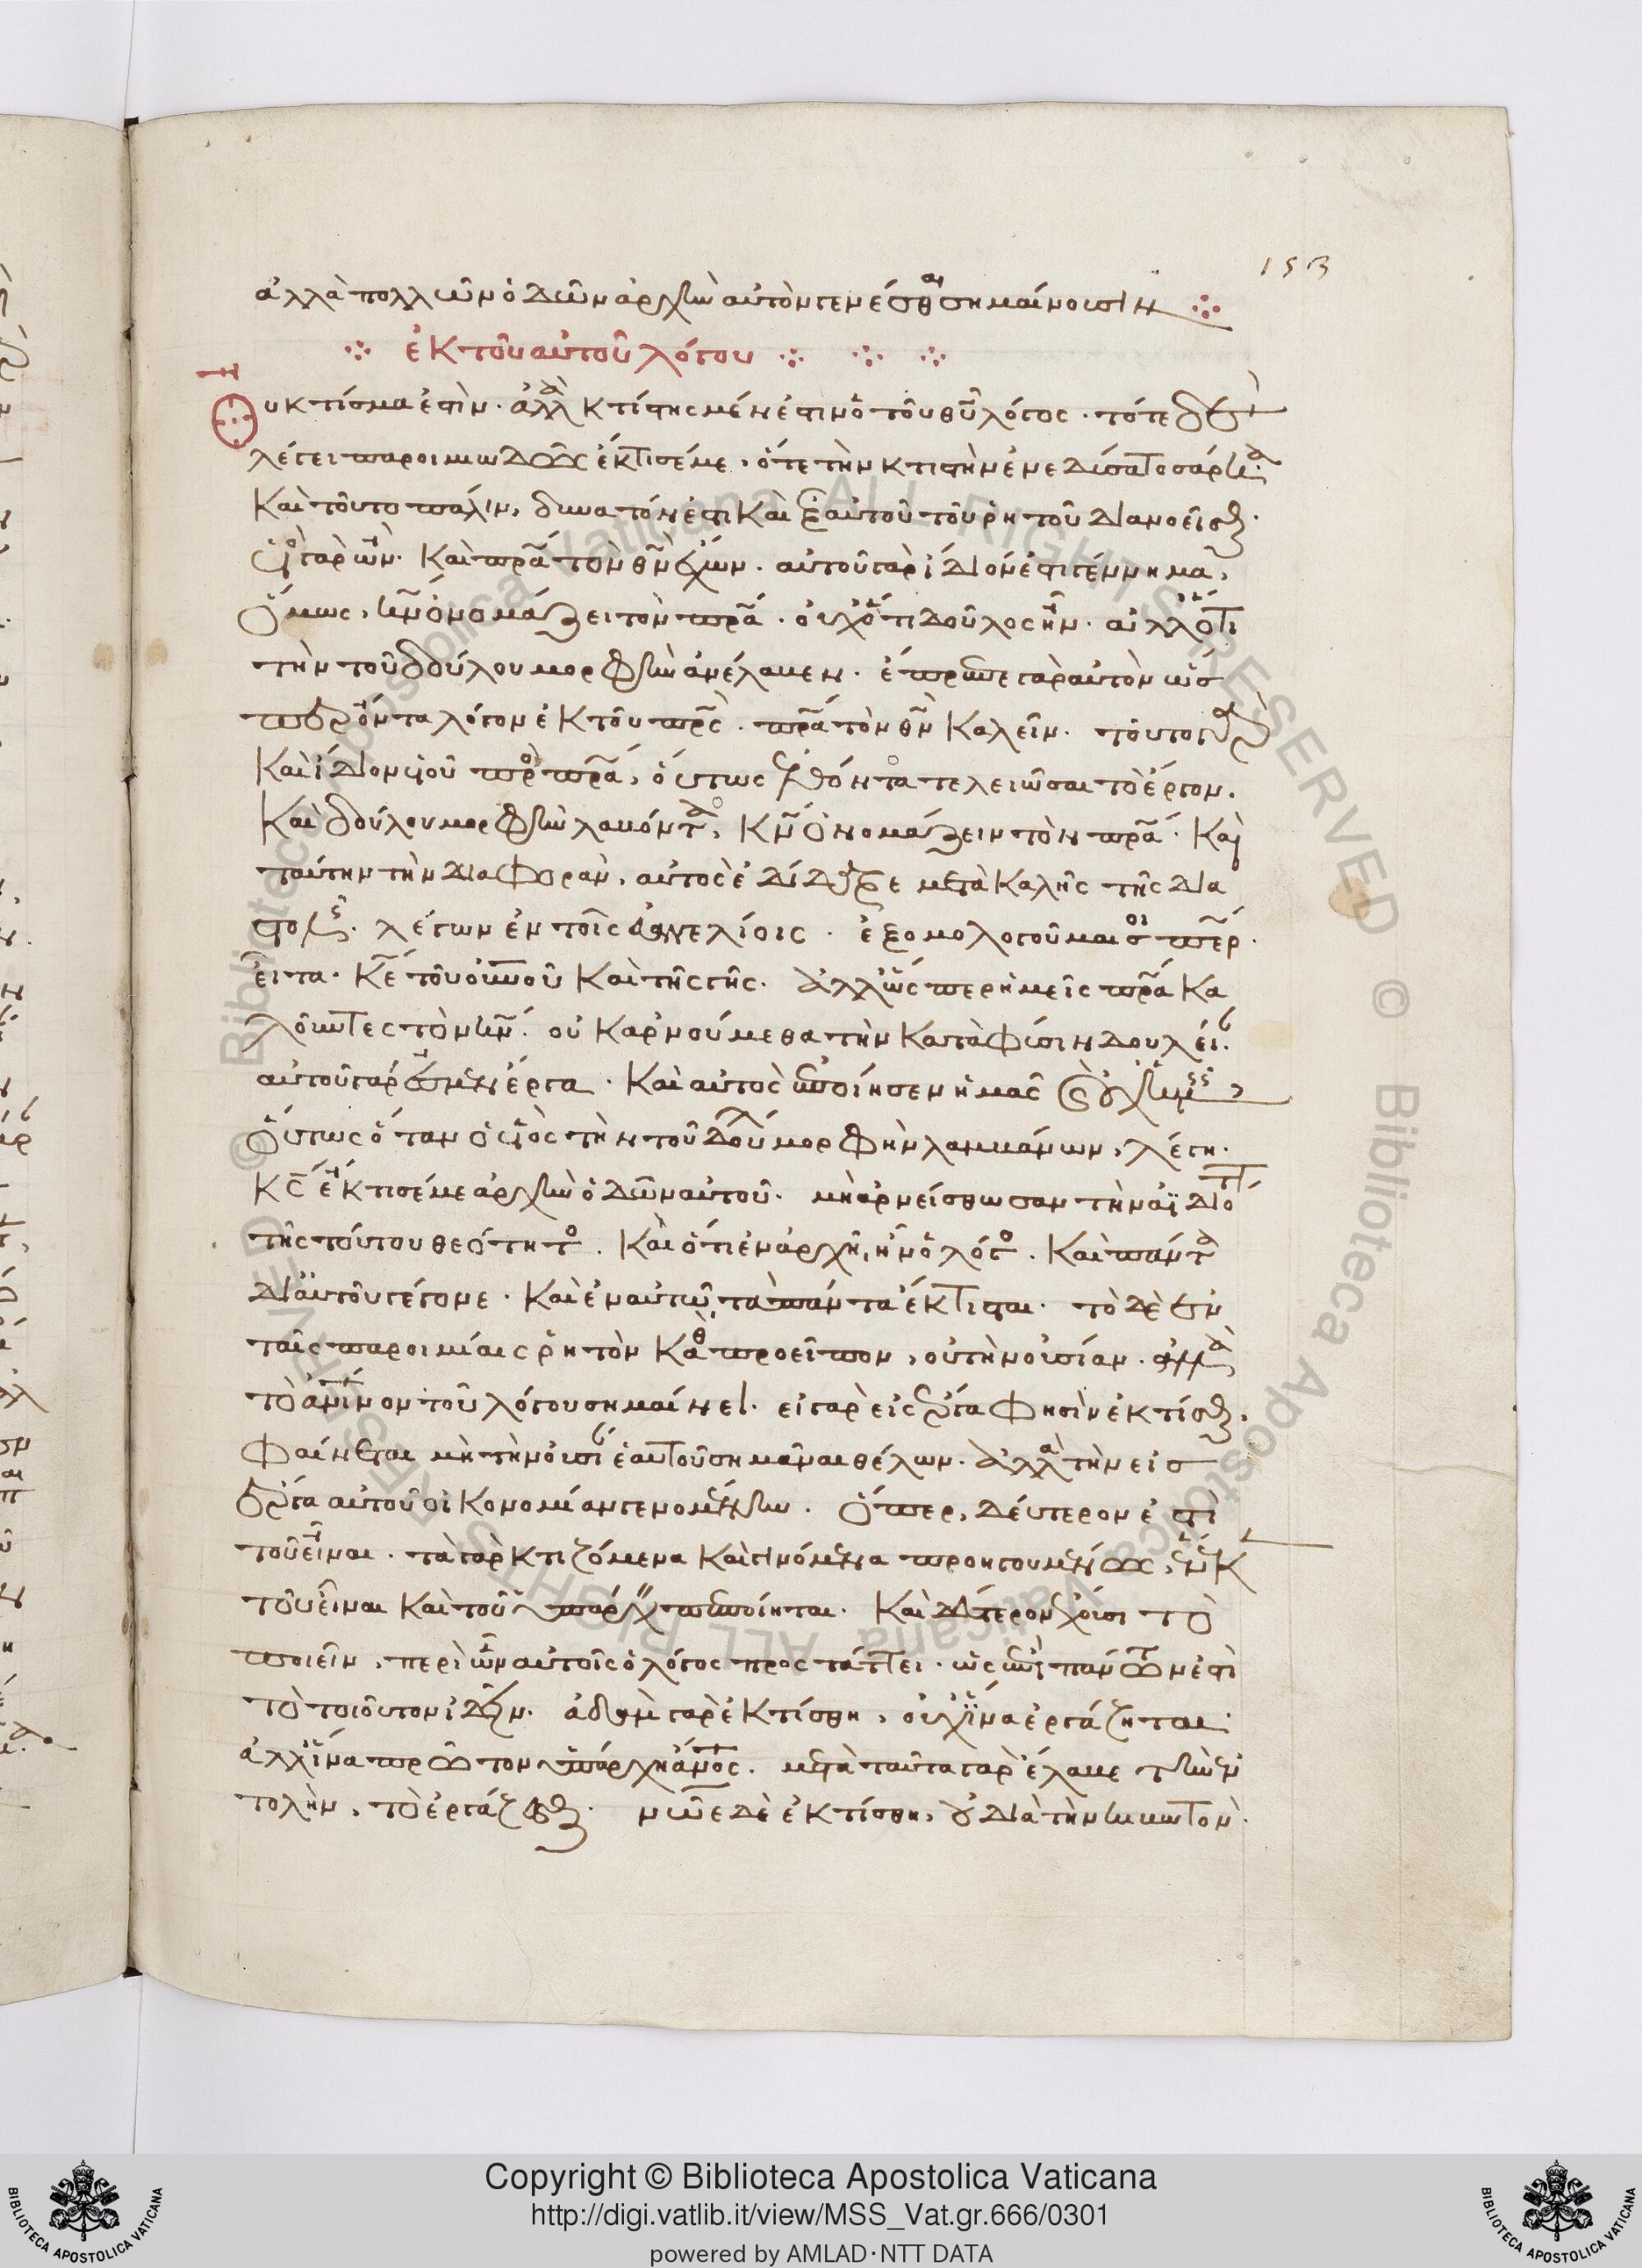 153
ἀλλὰ πολλῶν ὁδῶν ἀρχὴν αὐτὸν γενέσθαι σημαίνουσιν
ἐκ τοῦ αὐτοῦ λόγου
Οὐ κτίσμα ἐστὶν. ἀλλὰ κτίστης μέν ἐστιν ὁ τοῦ θυ λόγος. τότε δὲ
λέγει παροιμιωδῶς ἔκτισέ με, ὅτε τὴν κτιστὴν ἐνεδύσατο σάρκα.
Καὶ τοῦτο πάλιν, δυνατόν ἐστι καὶ ἐξ αὐτοῦ τοῦ ῥητοῦ διανοεῖσθαι.
υἱὸς γὰρ ὢν. καὶ πρα τὸν θν ἔχων. αὐτοῦ γὰρ ἴδιόν ἐστι γέννημα,
ὅμως, κν ὀνομάζει τὸν πρα. οὐχ ὅτι δοῦλος ἦν. ἀλλ' ὅτι
τὴν τοῦ δούλου μορφὴν ἀνέλαβεν. ἔπρεπε γὰρ αὐτὸν ὡς
λόγον ἐκ τοῦ πρς. πρα τὸν θν καλεῖν. τοῦτο γὰρ
καὶ ἴδιον υἱοῦ πρὸς πρα, οὕτως ἐλθόντα τελειῶσαι τὸ ἔργον.
καὶ δούλου μορφὴν λαβόντα, κν ὀνομάζειν τὸν πρα. καὶ
ταύτην τὴν διαφορὰν, αὐτὸς ἐδίδαξε μετὰ καλῆς τῆς δια
στολῆς. λέγων ἐν τοῖς εὐαγγελίοις. ἐξομολογοῦμαί σοι περ.
εἶτα. κε τοῦ οὐνοῦ καὶ τῆς γῆς. ἀλλ' ὥσπερ ἡμεῖς πρα κα
λοῦντες τὸν κν. οὐκ ἀρνούμεθα τὴν κατὰ φύσιν δουλείαν.
αὐτοῦ γάρ ἐσμεν ἔργα. καὶ αὐτὸς ἐποίησεν ἡμᾶς καὶ οὐχ ἡμεῖς,
οὕτως ὅταν ὁ υἱὸς τὴν τοῦ δούλου μορφὴν λαμβάνων, λέγη.
κς ἔκτισέ με ἀρχὴν ὁδῶν αὐτοῦ. μὴ ἀρνείσθωσαν τὴν ἀϊδιότητα
τῆς τούτου θεότητος. καὶ ὅτι ἐν ἀρχῆ, ἦν ὁ λόγος. καὶ πάντα
δι' αὐτοῦ γέγονε. καὶ ἐν αὐτῶ, τὰ πάντα ἔκτισται. τὸ δὲ ἐν
ταῖς παροιμίαις ῥητὸν καθὰ προεῖπον, οὐ τὴν οὐσίαν. ἀλλὰ
τὸ ἀνθρώπινον τοῦ λόγου σημαίνει. εἰ γὰρ εἰς ἔργα φησὶν ἐκτίσθαι,
φαίνεται μὴ τὴν οὐσίαν ἑαυτοῦ σημᾶναι θέλων. ἀλλὰ τὴν εἰς
ἔργα αὐτοῦ οἰκονομίαν γενομένην. ὅπερ, δεύτερόν ἐστι
τοῦ εἶναι. τὰ γὰρ κτιζόμενα καὶ γινόμενα προηγουμένως, ἕνεκ
τοῦ εἶναι καὶ τοῦ ὑπάρχειν πεποίηται. καὶ δεύτερον ἔχουσι τὸ
ποιεῖν, περὶ ὧν αὐτοῖς ὁ λόγος προστάττει. ὡς ἐπὶ πάντων ἐστὶ
τὸ τοιοῦτον ἰδεῖν. ἀδὰμ γὰρ ἐκτίσθη, οὐχ ἵνα ἐργάζηται.
ἀλλ' ἵνα πρῶτον ὑπάρχη ἄνος. μετὰ ταῦτα γὰρ ἔλαβε τὴν ἐν
τολὴν, τὸ ἐργάζεσθαι. νῶε δὲ ἐκτίσθη, οὐ διὰ τὴν κιβωτὸν.
Copyright © Biblioteca Apostolica Vaticana
http://digi.vatlib.it/view/MSS_Vat.gr.666/0301
powered by AMLAD·NTT DATA